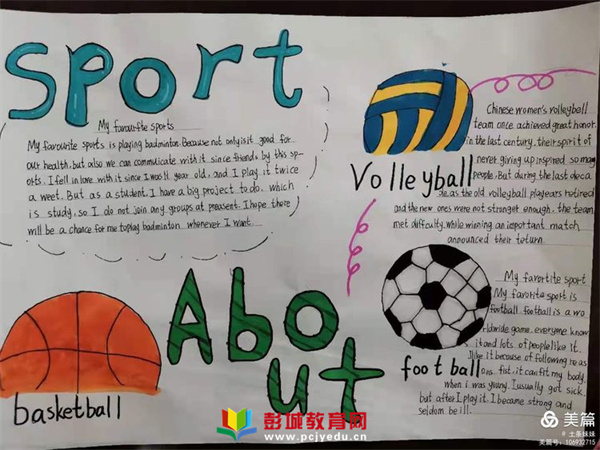 sport
My favourite sports
My favourite sports is playing badminton. Because not only is it good for
our health, but also we can commuticate with it since friends by this sp-
orts. I fell in love with it since I was 11 year old. and I play it twice
a weet. But as a student. I have a big project to do, which
is study. so I do not join any groups at preasent. I hope there
will be a chance for me to play badminton whenever I want.
Chinese women's volleyball
team once achieved great honor
in the last century, their spirit of
never giving up inspired so many
people. But during the last deca
de. as the old volleyball playears retired
and the new ones were not stronget enough. the team
met difficulty. while winning an important match
announced their teturn.
Volleyball
About
basketball
football
My favortite sport
My favorite sport is
football. football is a wo
rldwide game. everyone know
s it and lots of people like it.
I like it because of following reas
ons. fist. it can fit my body.
when I was young. I usually got sick.
but after I play it. I became strong and
seldom be ill.
彭城教育网
www.pcjyedu.cn
美篇
土条妹妹
美篇号:106932715